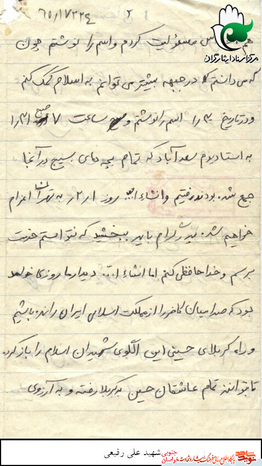 مرکز اسناد ایثارگران
هم مسئولیت کردم و اسم را نوشتم چون
که می دانستم در جبهه بیشتر می توانم به اسلام کمک کنم
و در تاریخ ۳۰ را اسم را نوشتم و ساعت ۷ صبح ۳۱ را
به استادیوم سعدآباد که تمام بچه های بسیج در آنجا
جمع شده بودند رفتیم و انشاءا... روز ۱ ر ۲ ر به اعزام
خواهیم شد. پدر گرام باید ببخشید که نتوانستم خدمت
برسم و خداحافظی کنم اما انشاءا... دیدار ما روزی خواهد
بود که صدامیان کافر را از مملکت اسلامی ایران رانده باشیم
و راه کربلای حسینی این الگوی شهیدان اسلام را باز کرده
تا بتوانند تمام عاشقان حسین به کربلا رفته و به آرزوی
شهید علی رفیعی